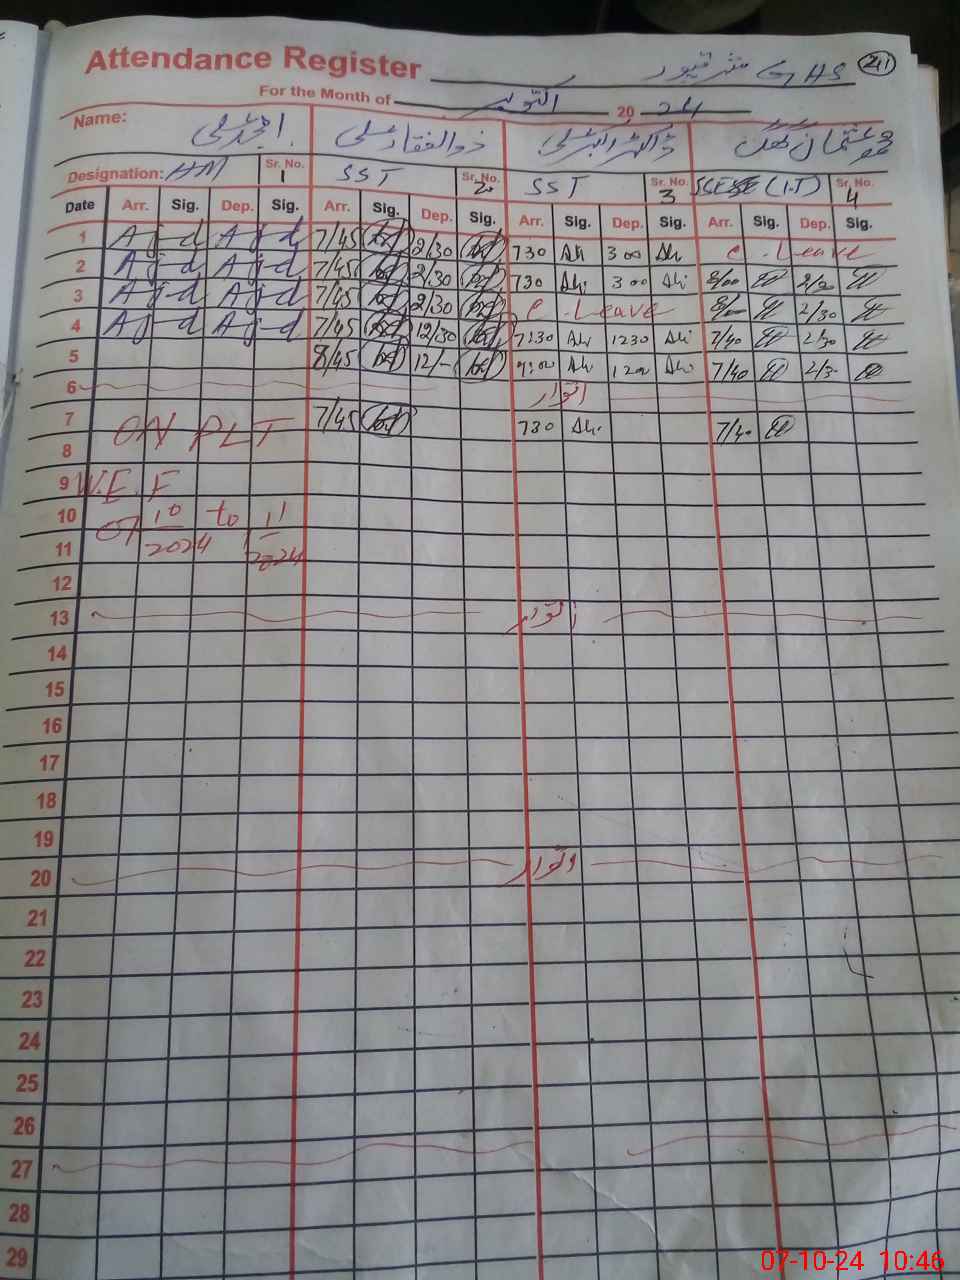 Attendance Register GHS شرقپور 241
For the Month of اکتوبر 20 24
Name: امجد علی ذوالفقار علی ڈاکٹر اکبر علی عثمان
Designation: HM Sr. No. 1 SST Sr. No. 2 SST Sr. No. 3 SSE (I.T) Sr. No. 4
Date Arr. Sig. Dep. Sig. Arr. Sig. Dep. Sig. Arr. Sig. Dep. Sig. Arr. Sig. Dep. Sig.
1 7/45 2/30 730 300 C. Leave
2 7/45 2/30 730 300 8/00 2/30
3 7/45 2/30 C. Leave 2/30
4 7/45 12/30 7:30 1230 7/40 2/30
5 8/45 12/- 9:00 1200 7/40
6 اتوار
7 ON PLT 7/45 730 7/40
8
9 W.E.F
10 07 10/2024 to 11/2024
11
12
13 اتوار
14
15
16
17
18
19
20 اتوار
21
22
23
24
25
26
27
28
29
07-10-24 10:46